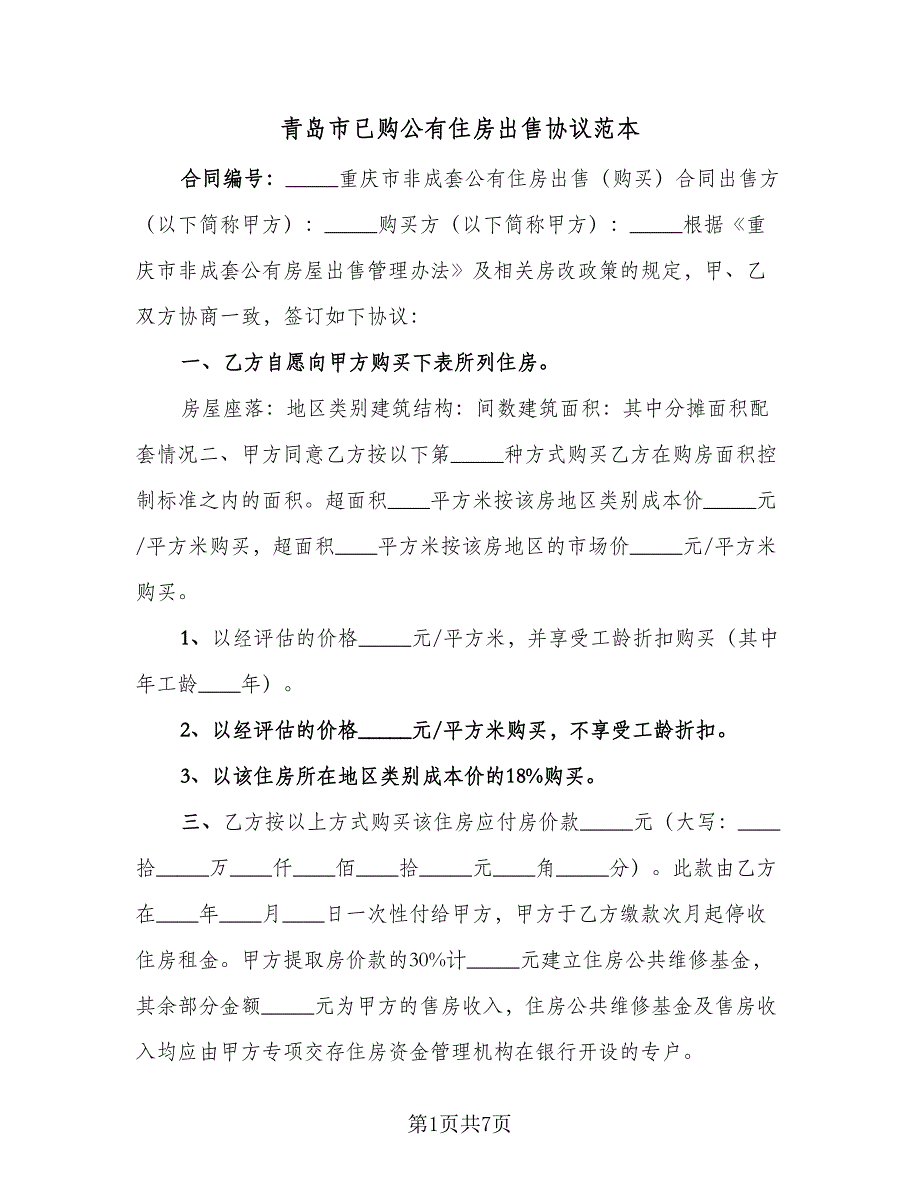 青岛市已购公有住房出售协议范本
合同编号：_____重庆市非成套公有住房出售（购买）合同出售方
（以下简称甲方）：_____购买方（以下简称甲方）：_____根据《重
庆市非成套公有房屋出售管理办法》及相关房改政策的规定，甲、乙
双方协商一致，签订如下协议：
一、乙方自愿向甲方购买下表所列住房。
房屋座落：地区类别建筑结构：间数建筑面积：其中分摊面积配
套情况二、甲方同意乙方按以下第_____种方式购买乙方在购房面积控
制标准之内的面积。超面积____平方米按该房地区类别成本价_____元
/平方米购买，超面积____平方米按该房地区的市场价_____元/平方米
购买。
1、以经评估的价格_____元/平方米，并享受工龄折扣购买（其中
年工龄____年）。
2、以经评估的价格_____元/平方米购买，不享受工龄折扣。
3、以该住房所在地区类别成本价的18%购买。
三、乙方按以上方式购买该住房应付房价款_____元（大写：____
拾_____万____仟____佰____拾_____元____角_____分）。此款由乙方
在____年____月____日一次性付给甲方，甲方于乙方缴款次月起停收
住房租金。甲方提取房价款的30%计_____元建立住房公共维修基金，
其余部分金额_____元为甲方的售房收入，住房公共维修基金及售房收
入均应由甲方专项交存住房资金管理机构在银行开设的专户。
第1页共7页